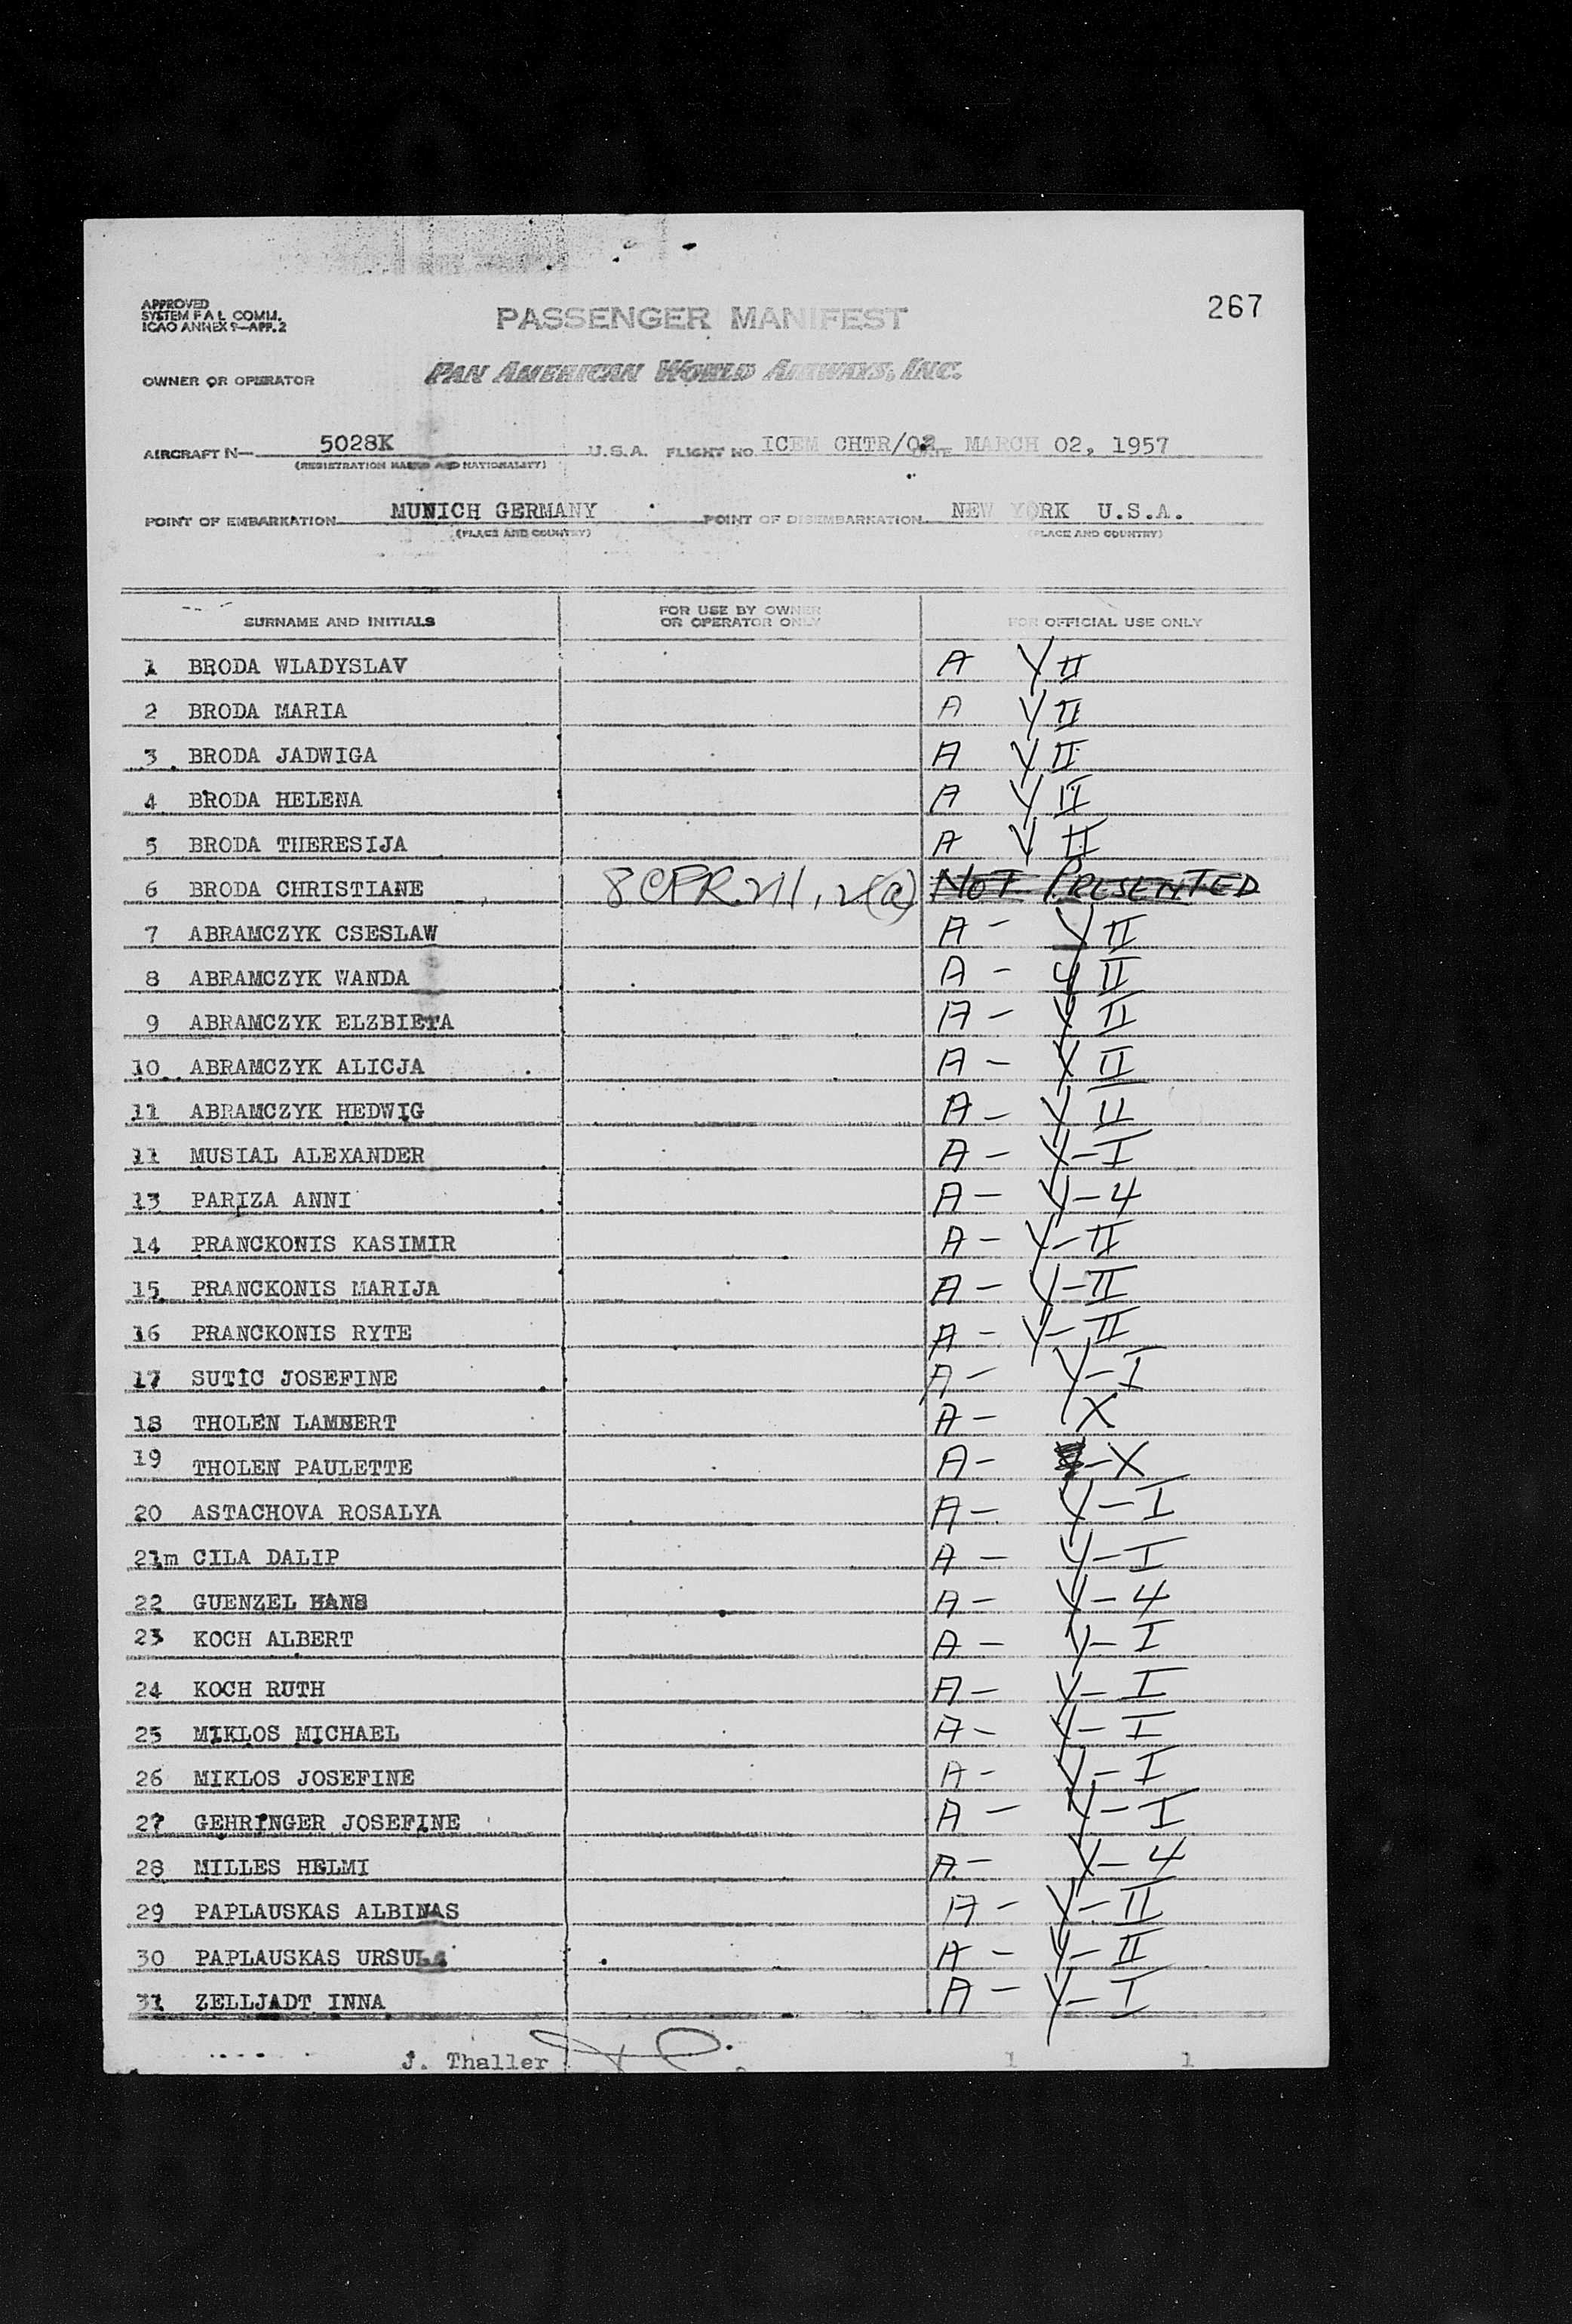 APPROVED
SYSTEM F A L COMM.
ICAO ANNEX 9—APP. 2
PASSENGER MANIFEST
267
OWNER OR OPERATOR PAN AMERICAN WORLD AIRWAYS, INC.
AIRCRAFT N— 5028K U.S.A. FLIGHT NO ICEM CHTR/02 DATE MARCH 02, 1957
(REGISTRATION MARKS AND NATIONALITY)
POINT OF EMBARKATION MUNICH GERMANY POINT OF DISEMBARKATION NEW YORK U.S.A.
(PLACE AND COUNTRY) (PLACE AND COUNTRY)
SURNAME AND INITIALS FOR USE BY OWNER OR OPERATOR ONLY FOR OFFICIAL USE ONLY
1 BRODA WLADYSLAV A Y II
2 BRODA MARIA A Y II
3. BRODA JADWIGA A Y II
4 BRODA HELENA A Y II
5 BRODA THERESIJA A Y II
6 BRODA CHRISTIANE 8 CFR 211, 2(a) NOT PRESENTED
7 ABRAMCZYK CSESLAW A - Y II
8 ABRAMCZYK WANDA A - Y II
9 ABRAMCZYK ELZBIETA A - Y II
10. ABRAMCZYK ALICJA A - Y II
11 ABRAMCZYK HEDWIG A - Y II
11 MUSIAL ALEXANDER A - Y-I
13 PARIZA ANNI A - Y-4
14 PRANCKONIS KASIMIR A - Y-II
15 PRANCKONIS MARIJA A - Y-II
16 PRANCKONIS RYTE A - Y-II
17 SUTIC JOSEFINE A - Y-I
18 THOLEN LAMBERT A - X
19 THOLEN PAULETTE A - -X
20 ASTACHOVA ROSALYA A - Y-I
21m CILA DALIP A - Y-I
22 GUENZEL HANS A - Y-4
23 KOCH ALBERT A - Y-I
24 KOCH RUTH A - Y-I
25 MIKLOS MICHAEL A - Y-I
26 MIKLOS JOSEFINE A - Y-I
27 GEHRINGER JOSEFINE A - Y-I
28 MILLES HELMI A - Y-4
29 PAPLAUSKAS ALBINAS A - Y-II
30 PAPLAUSKAS URSULA A - Y-II
31 ZELLJADT INNA A - Y-I
J. Thaller 1 1